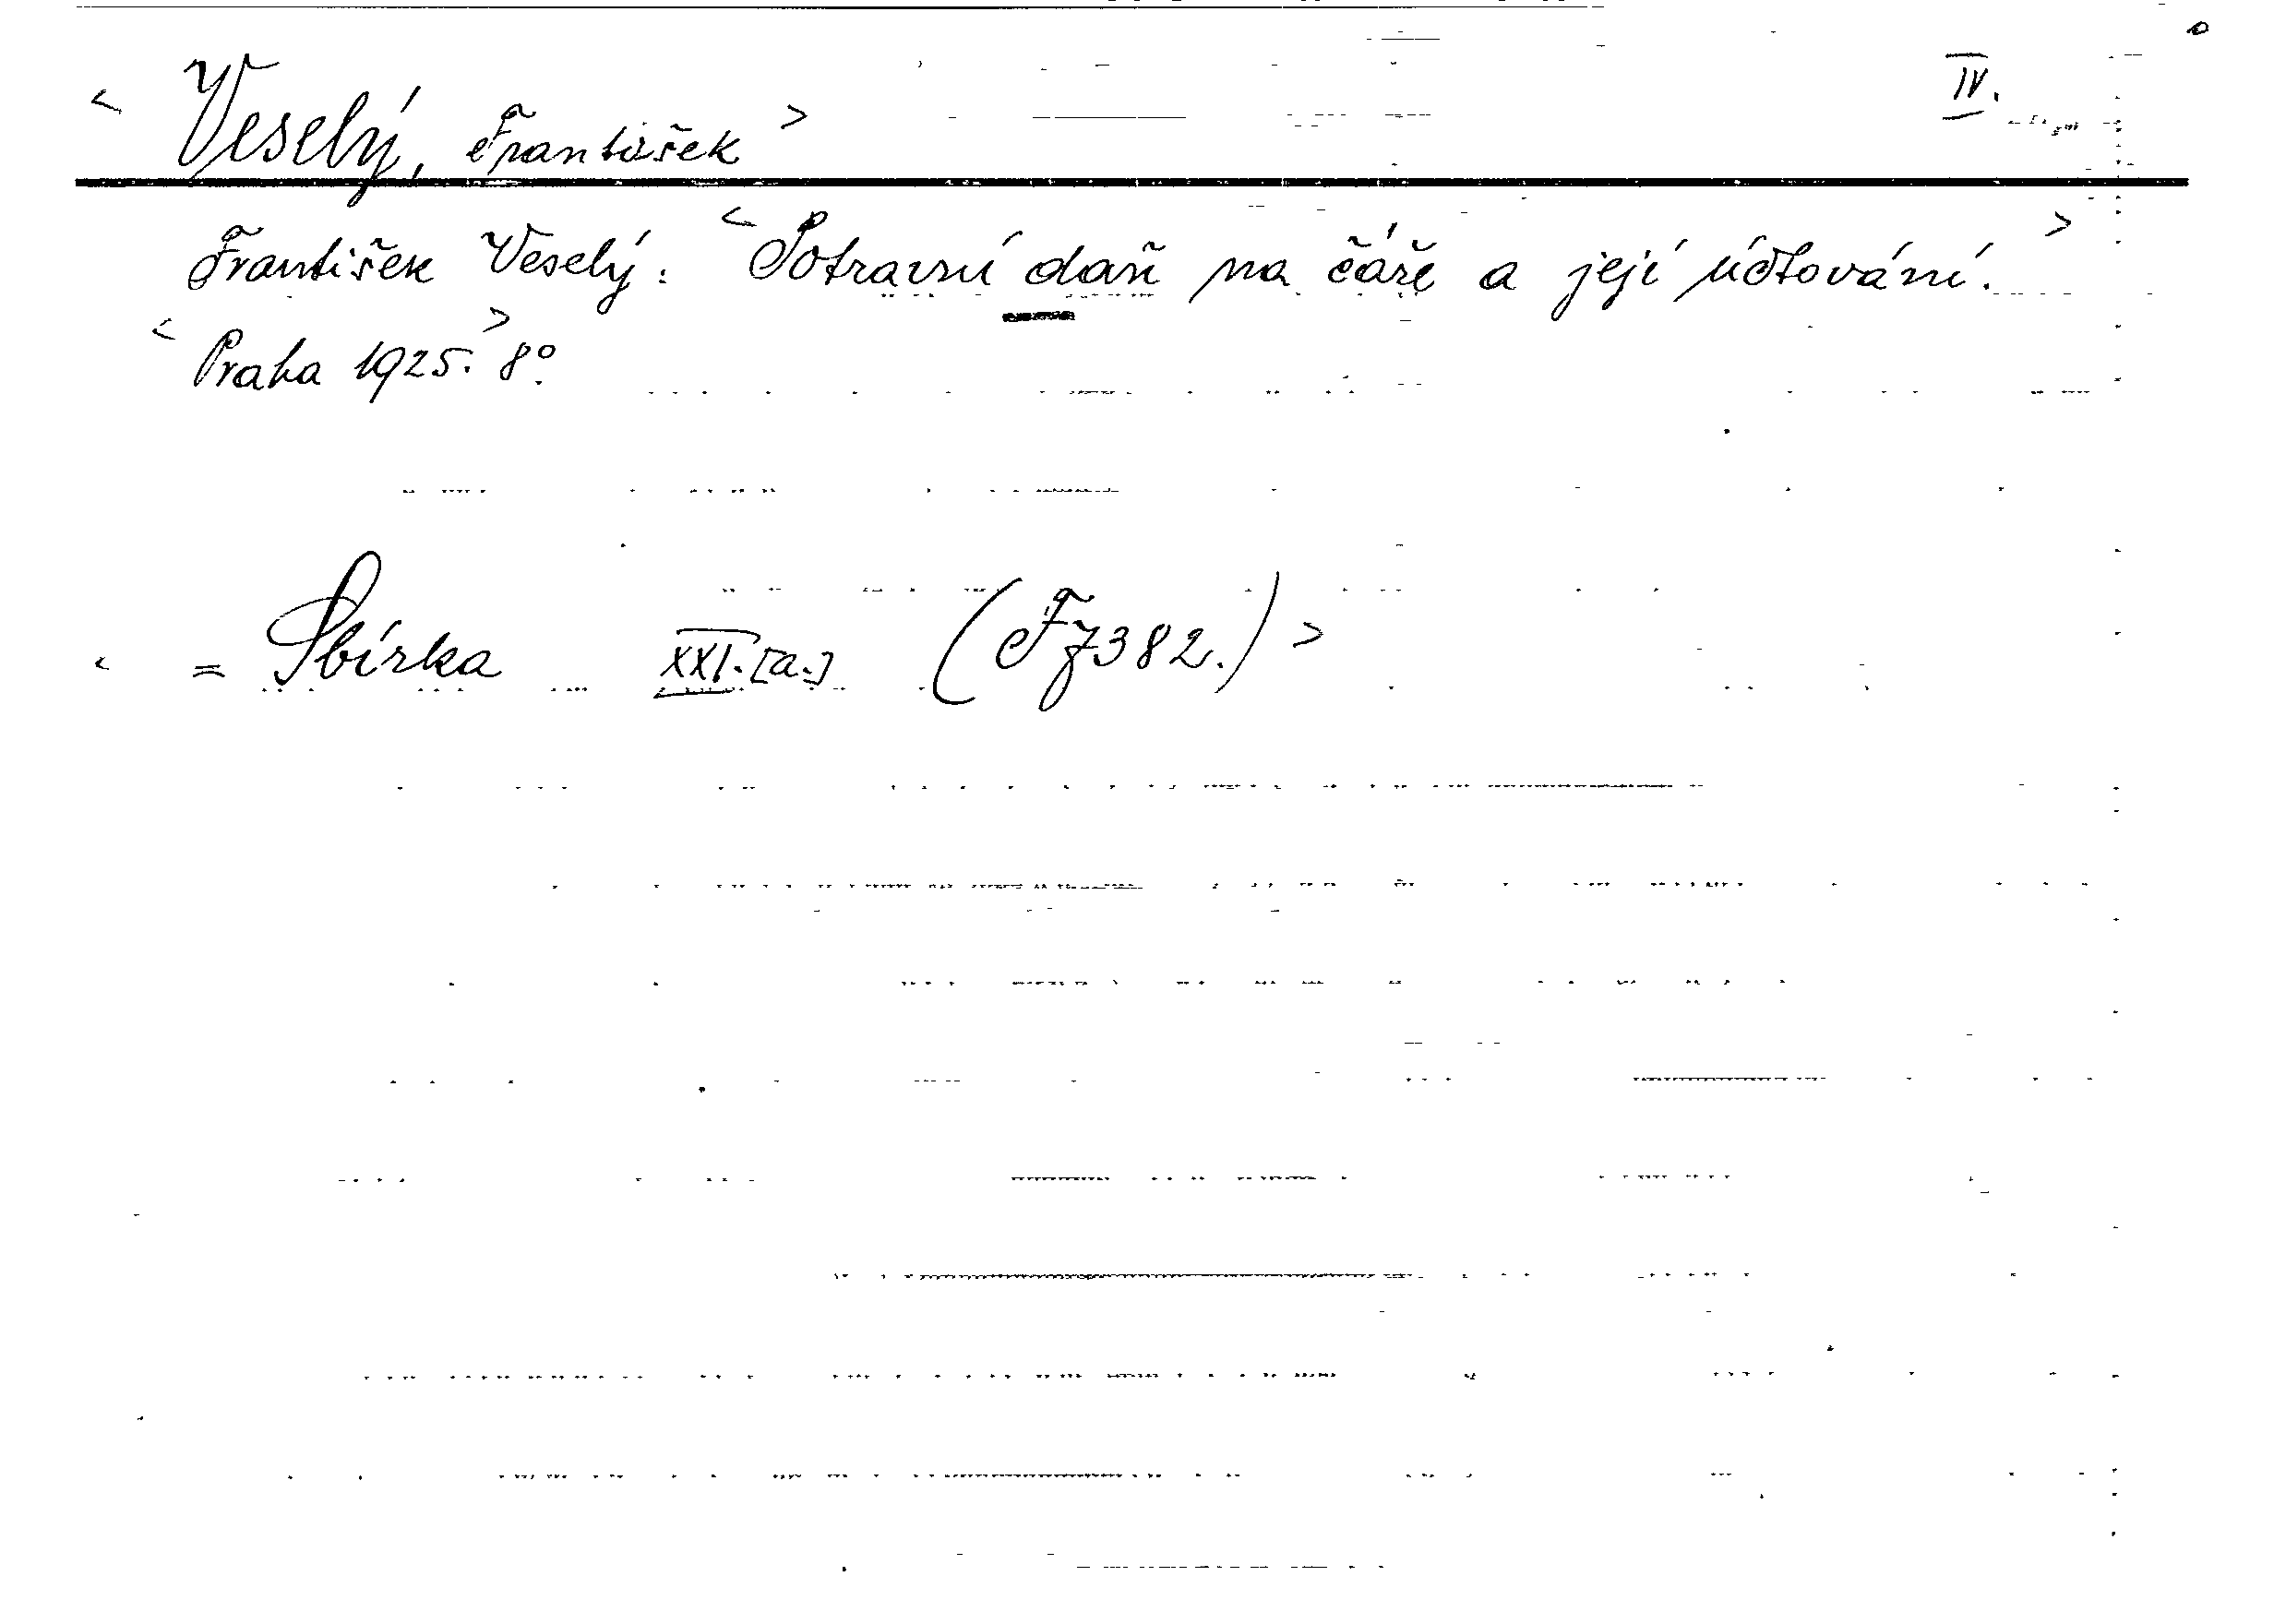 < Veselý, František > IV.
František Veselý: < Potravní daň na čáře a její účtování. >
< Praha 1925. > 8°.
< = Sbírka XXI. [a.] (F7382.) >